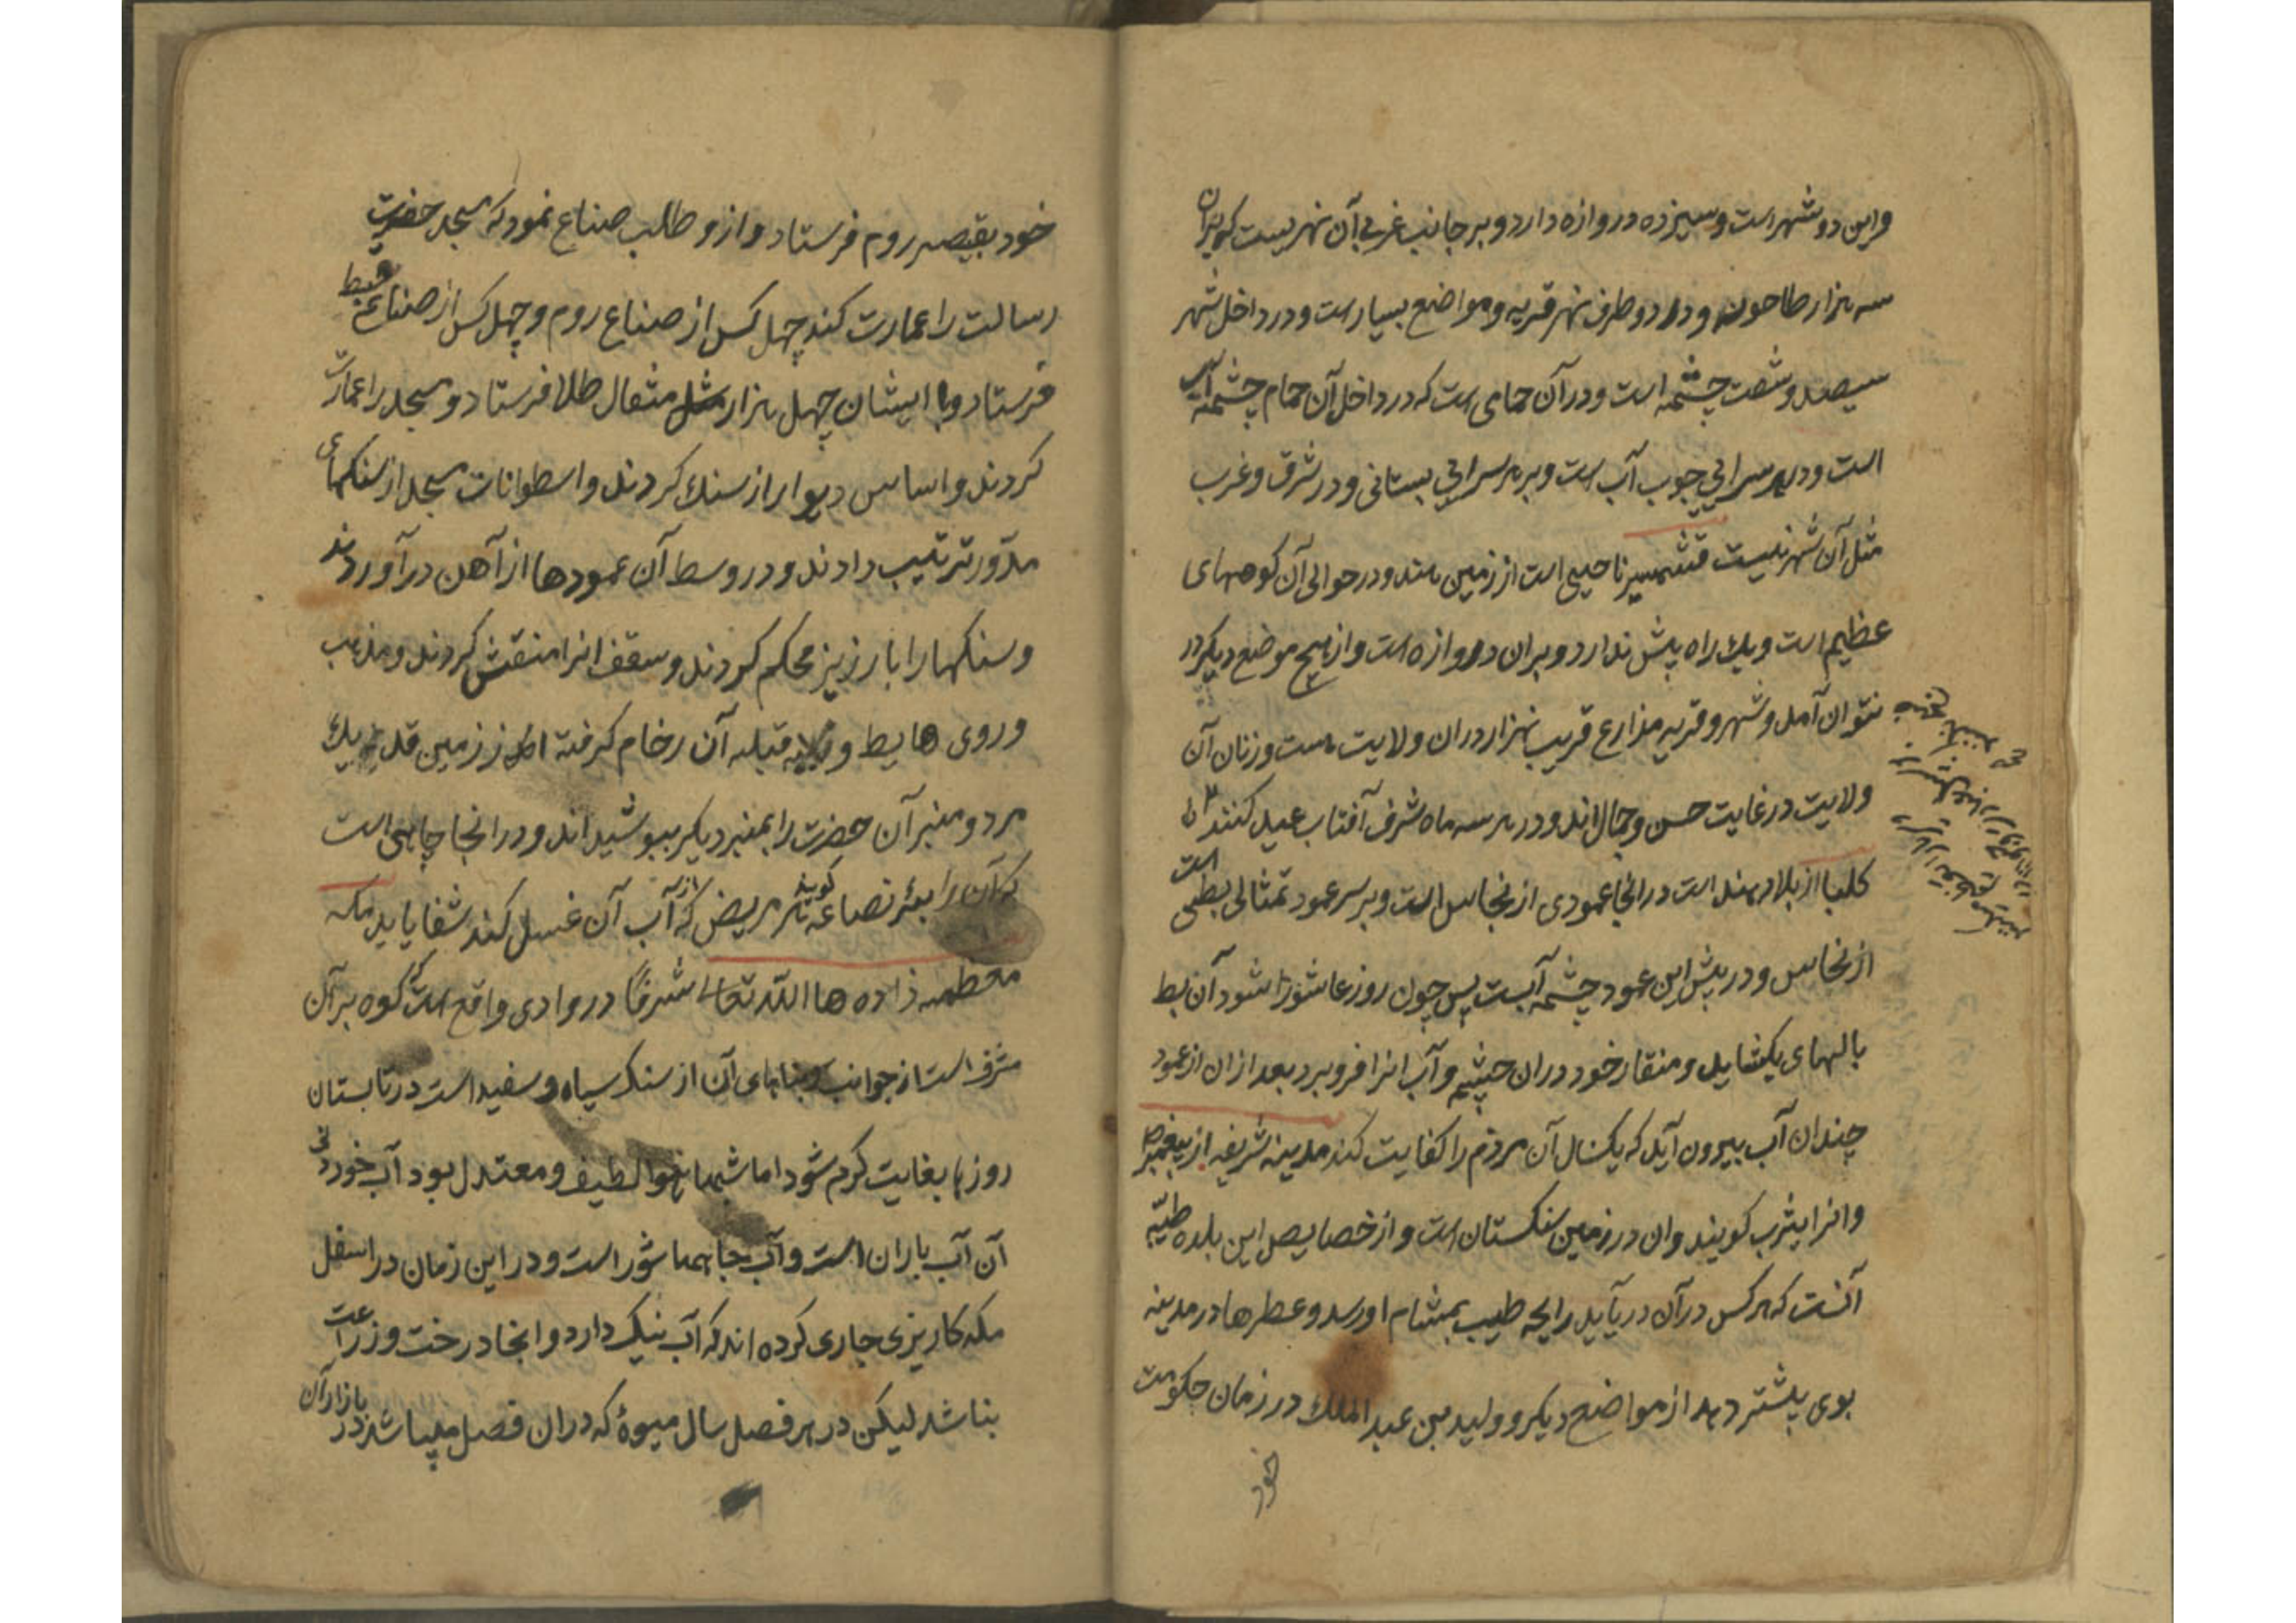 واین دو شهر است و سیزده دروازه دارد و بر جانب غربی آن نهریست کویند بران
سه هزار طاحونه و در دو طرف نهر قریه و مواضع بسیار است و در داخل شهر
سیصد و شصت چشمه است و در آن حمامی است که در داخل آن حمام چشمه آب
است و در هر سرایی جوب آب است و بر هر سرایی بستانی و در شرق و غرب
مثل آن شهر نیست قشمیر ناحیی است از زمین هند و در حوالی آن کوههای
عظیم است و یک راه پیش ندارد و بران دروازه است و از هیچ موضع دیکر در
نتوان آمد و شهر و قریه مزارع قریب بهزار دران ولایت است و زنان آن
ولایت در غایت حسن و جمال اند و در هر سه ماه شرف آفتاب عید کنند
کلبا از بلاد هند است در انجا عمودی از نحاس است و بر سر عمود تمثالی بطی است
از نحاس و در پیش این عمود چشمه آبست پس چون روز عاشورا شود آن بط
بالهای بکشاید و منقار خود دران چشمه و آب انرا فرو برد بعد ازان از عمود
چندان آب بیرون آید که یکسال آن مردم را کفایت کند مدینه شریفه از پیغمبر ص
و انرا یثرب کویند وان در زمین سنکستان است و از خصایص این بلده طیبه
آنست که هر کس در آن در آید رایحه طیب بمشام او رسد و عطرها در مدینه
بوی بیشتر دهد از مواضع دیکر و ولید بن عبد الملک در زمان حکومت
خود
خود بقیصر روم فرستاد و ازو طلب صناع نمود که مسجد حضرت
رسالت را عمارت کند چهل کس از صناع روم و چهل کس از صناع قبط
فرستاد و با ایشان چهل هزار مثقال طلا فرستاد و مسجد را عمارت
کردند و اساس دیوار از سنک کردند و اسطوانات مسجد از سنکهای
مدور ترتیب دادند و در وسط آن عمودها از آهن در آوردند
و سنکها را با رزیز محکم کردند و سقف انرا منقش کردند و مذهب
و روی هایط و قبله آن رخام کرفته از زمین قد یک
مرد و منبر آن حضرت را بمنبر دیکر ببوشید اند و در انجا چاهی است
که آن را بئر نصاعه کویند هر مریض که از آب آن غسل کند شفا یابد مکه
معظمه زاده ها الله تعالی شرفا در وادی واقع است که کوه بر آن
مشرف است از جوانب و بناهای آن از سنک سیاه و سفید است در تابستان
روزها بغایت کرم شود اما شبها هوا لطیف و معتدل بود آب خوردنی
آن آب باران است و آب چاهها شور است و در این زمان در اسفل
مکه کاریزی جاری کرده اند که آب نیک دارد و انجا درخت و زراعت
بناشد لیکن در هر فصل سال میوهٔ که دران فصل میباشد در بازار آن